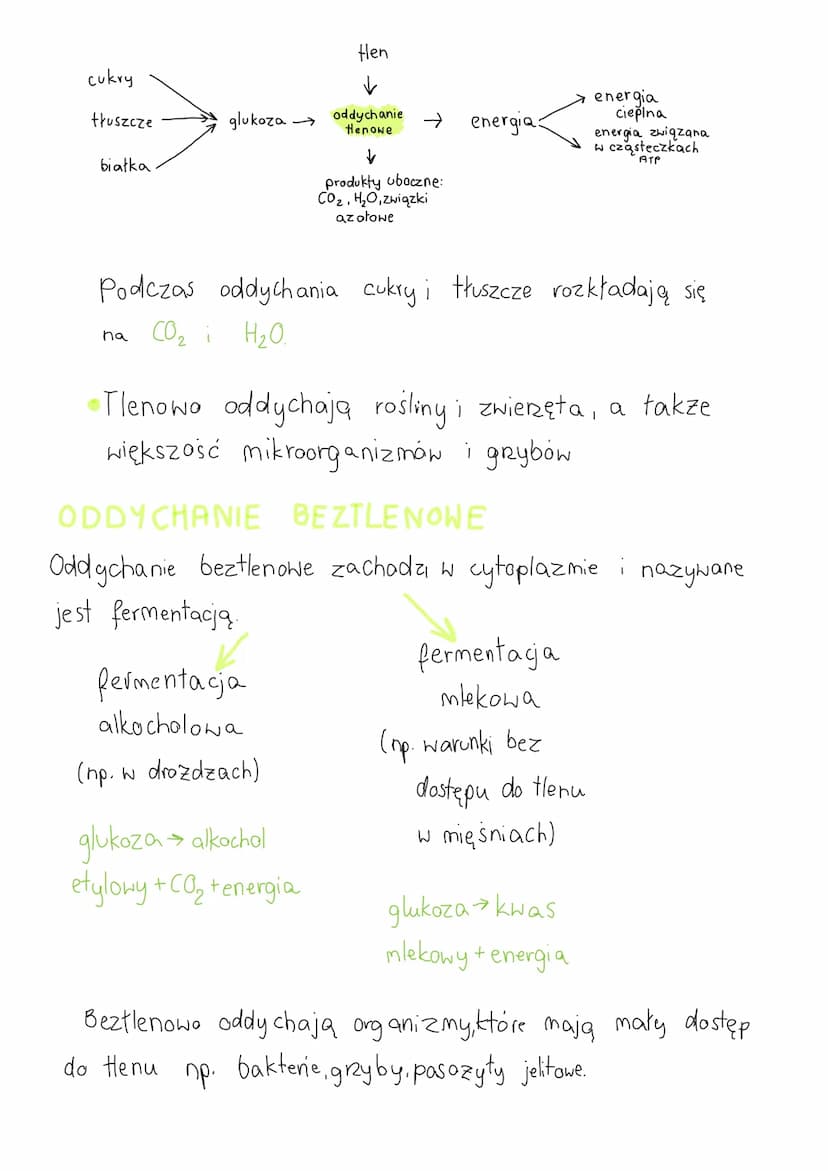 tlen
cukry
tłuszcze → glukoza → oddychanie tlenowe → energia
białka
energia
cieplna
energia związana
w cząsteczkach
ATP
produkty uboczne:
CO₂, H₂O, związki
azotowe
Podczas oddychania cukry i tłuszcze rozkładają się
na CO₂ i H₂O.
•Tlenowo oddychają rośliny i zwierzęta, a także
większość mikroorganizmów i grzybów
ODDYCHANIE BEZTLENOWE
Oddychanie beztlenowe zachodzi w cytoplazmie i nazywane
jest fermentacją.
fermentacja
alkocholowa
(np. w drożdzach)
glukoza → alkochol
etylowy + CO₂ + energia
fermentacja
mlekowa
(np. warunki bez
dostępu do tlenu
w mięśniach)
glukoza → kwas
mlekowy + energia
Beztlenowo oddychają organizmy, które mają mały dostęp
do tlenu np. bakterie, grzyby, pasożyty jelitowe.